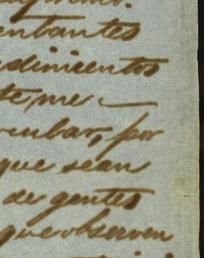 entantes
dimientos
te, me
cubar, por
que sean
de gentes
que observen